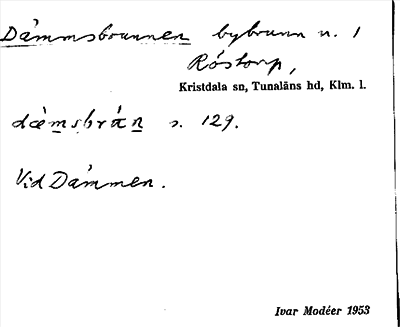 Dámmsbrunnen bybrunn n. 1
Róstorp,
Kristdala sn, Tunaläns hd, Klm. l.
dæmsbrán s. 129.
Vid Dámmen.
Ivar Modéer 1953